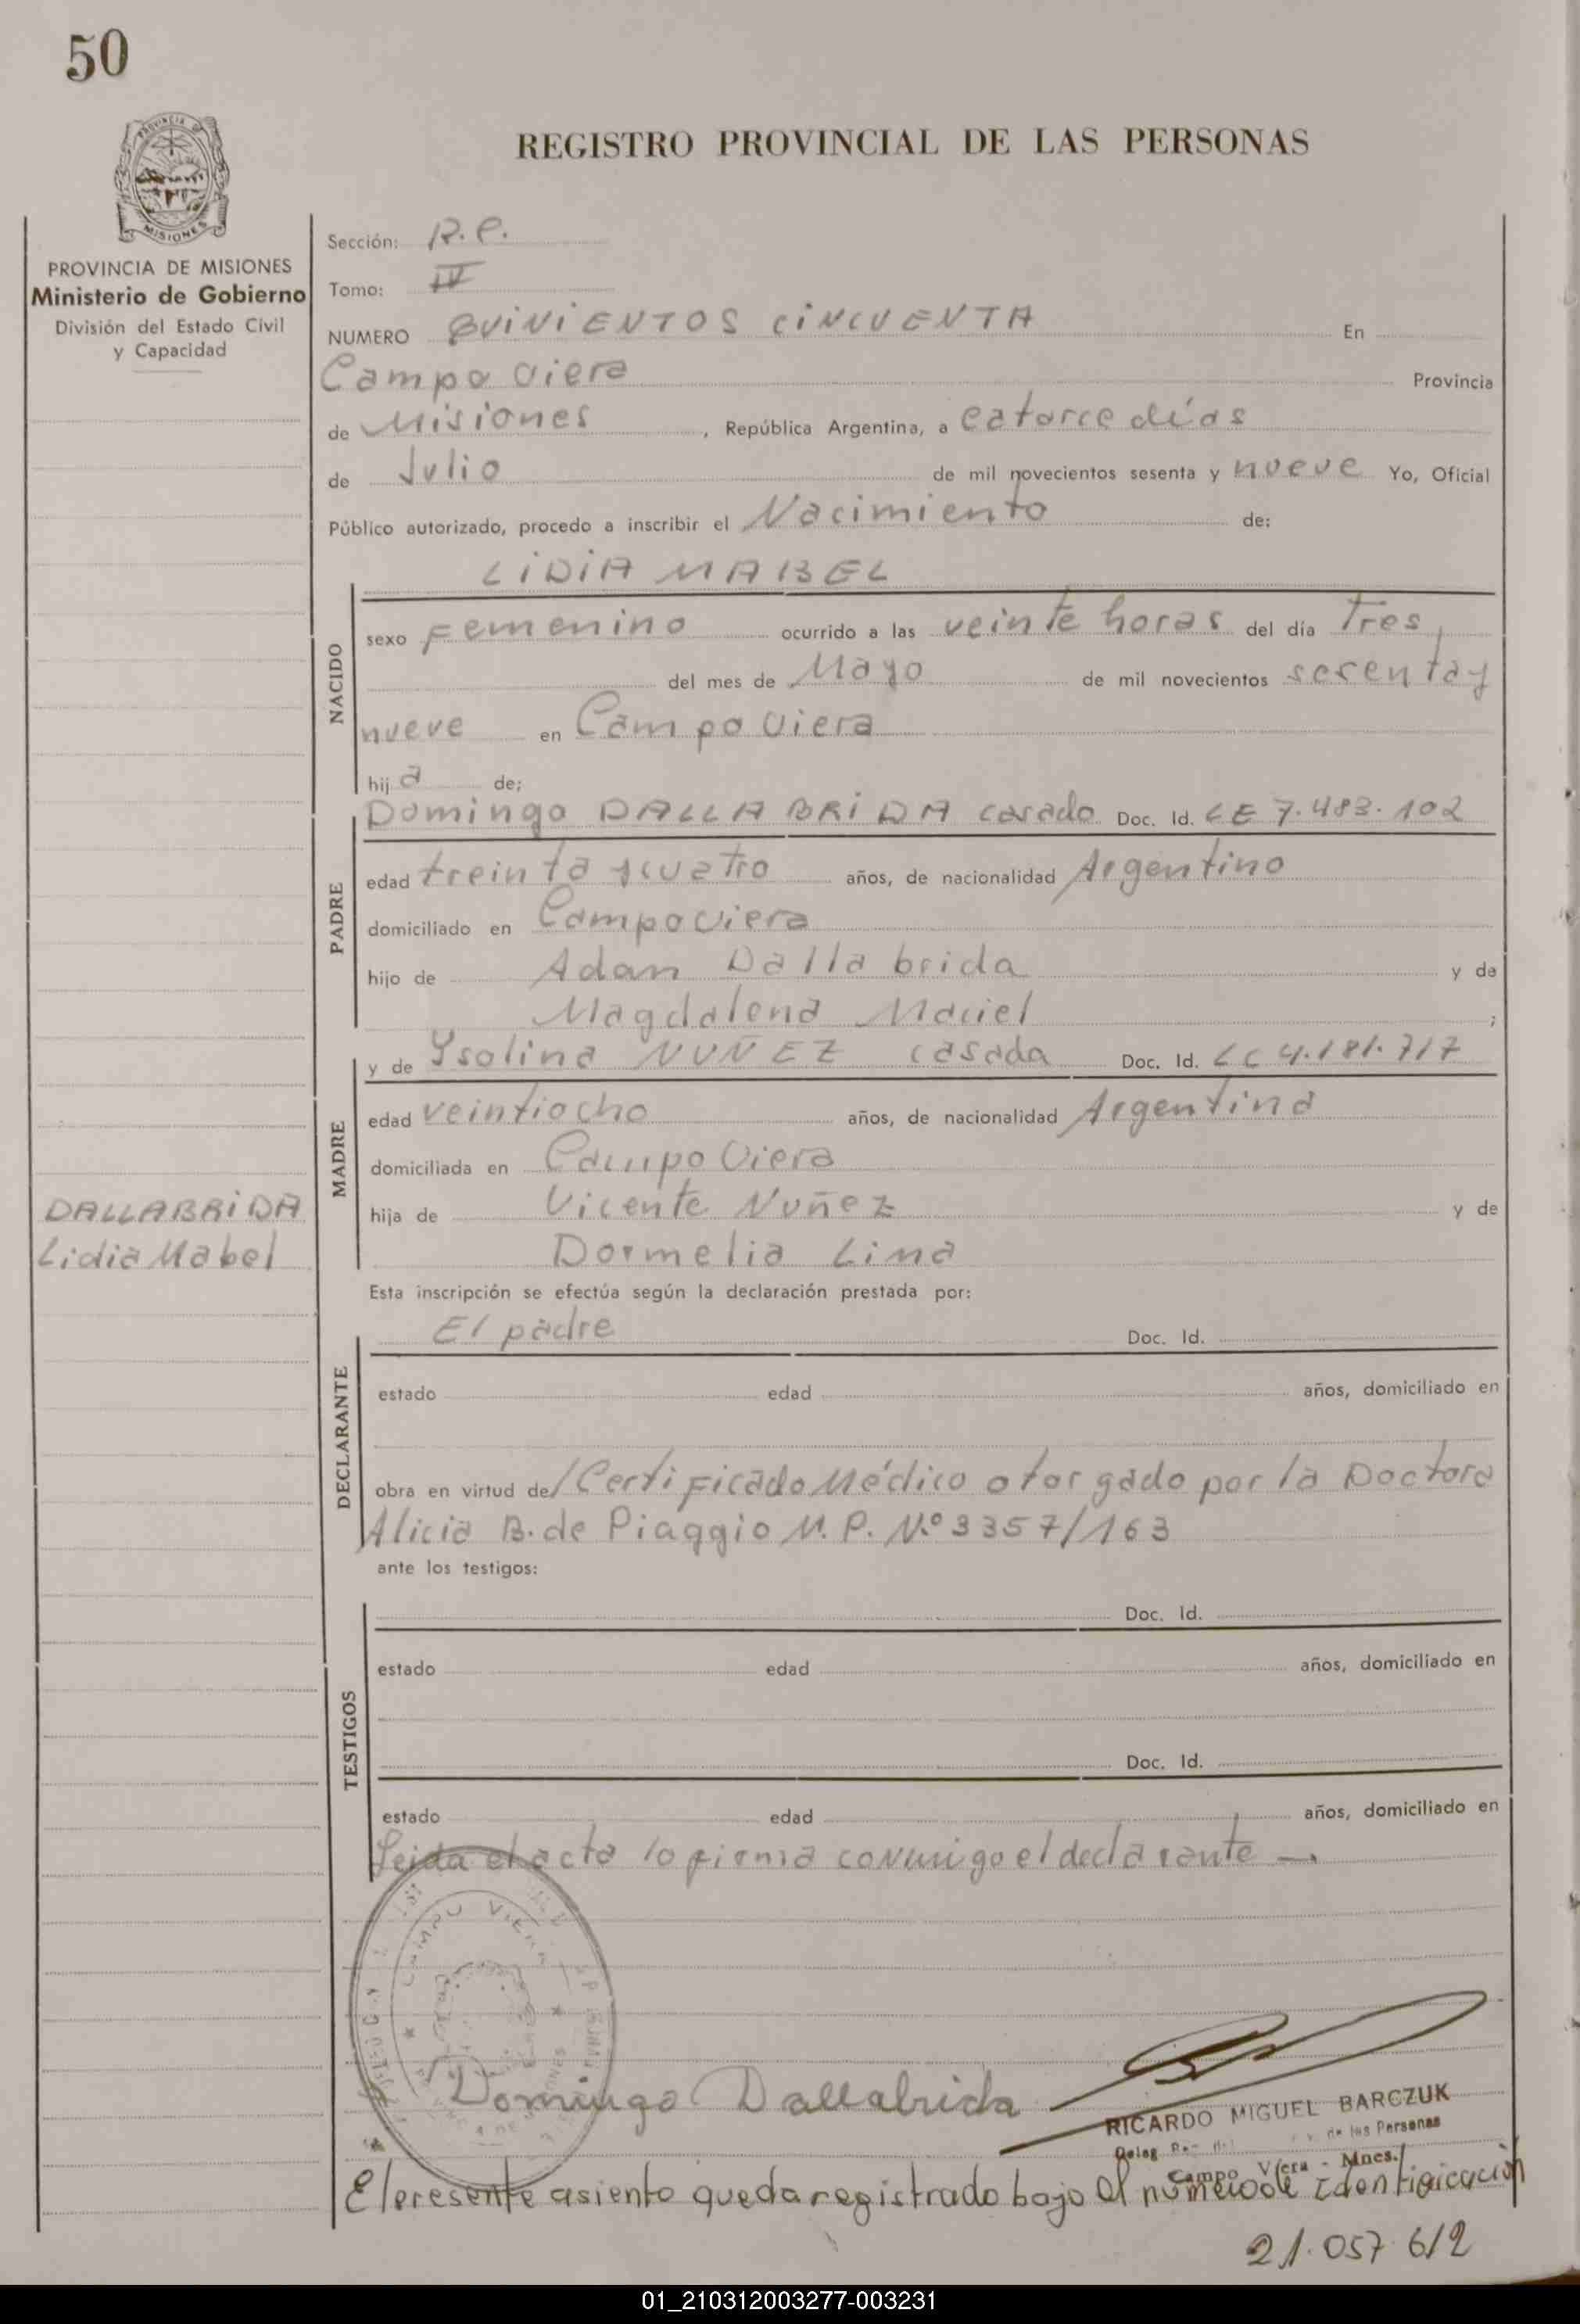 50
PROVINCIA DE MISIONES
MISIONES
PROVINCIA DE MISIONES
Ministerio de Gobierno
División del Estado Civil
y Capacidad
REGISTRO PROVINCIAL DE LAS PERSONAS
Sección: R.P.
Tomo: IV
NUMERO QUINIENTOS CINCUENTA En
Campo Viera Provincia
de Misiones, República Argentina, a catorce días
de Julio de mil novecientos sesenta y nueve Yo, Oficial
Público autorizado, procedo a inscribir el Nacimiento de:
LIDIA MABEL
NACIDO
sexo Femenino ocurrido a las veinte horas del día Tres
del mes de Mayo de mil novecientos sesenta y
nueve en Campo Viera
hij a de;
Domingo DALLABRIDA casado Doc. Id. LE 7.483.102
PADRE
edad treinta y cuatro años, de nacionalidad Argentino
domiciliado en Campo Viera
hijo de Adan Dallabrida y de
Magdalena Maciel ;
y de Ysolina NUÑEZ casada Doc. Id. LC 4.181.717
MADRE
edad veintiocho años, de nacionalidad Argentina
domiciliada en Campo Viera
hija de Vicente Nuñez y de
Dormelia Lima
DALLABRIDA
Lidia Mabel
Esta inscripción se efectúa según la declaración prestada por:
El padre Doc. Id.
DECLARANTE
estado edad años, domiciliado en
obra en virtud de/ Certificado Médico otorgado por la Doctora
Alicia B. de Piaggio M.P. N.º 3357/163
ante los testigos:
TESTIGOS
Doc. Id.
estado edad años, domiciliado en
Doc. Id.
estado edad años, domiciliado en
Leida el acta lo firma conmigo el declarante —.
CAMPO VIERA
Domingo Dallabrida
RICARDO MIGUEL BARCZUK
Deleg. de las Personas
Campo Viera - Mnes.
El presente asiento queda registrado bajo el número de identificación
21.057.612
01_210312003277-003231